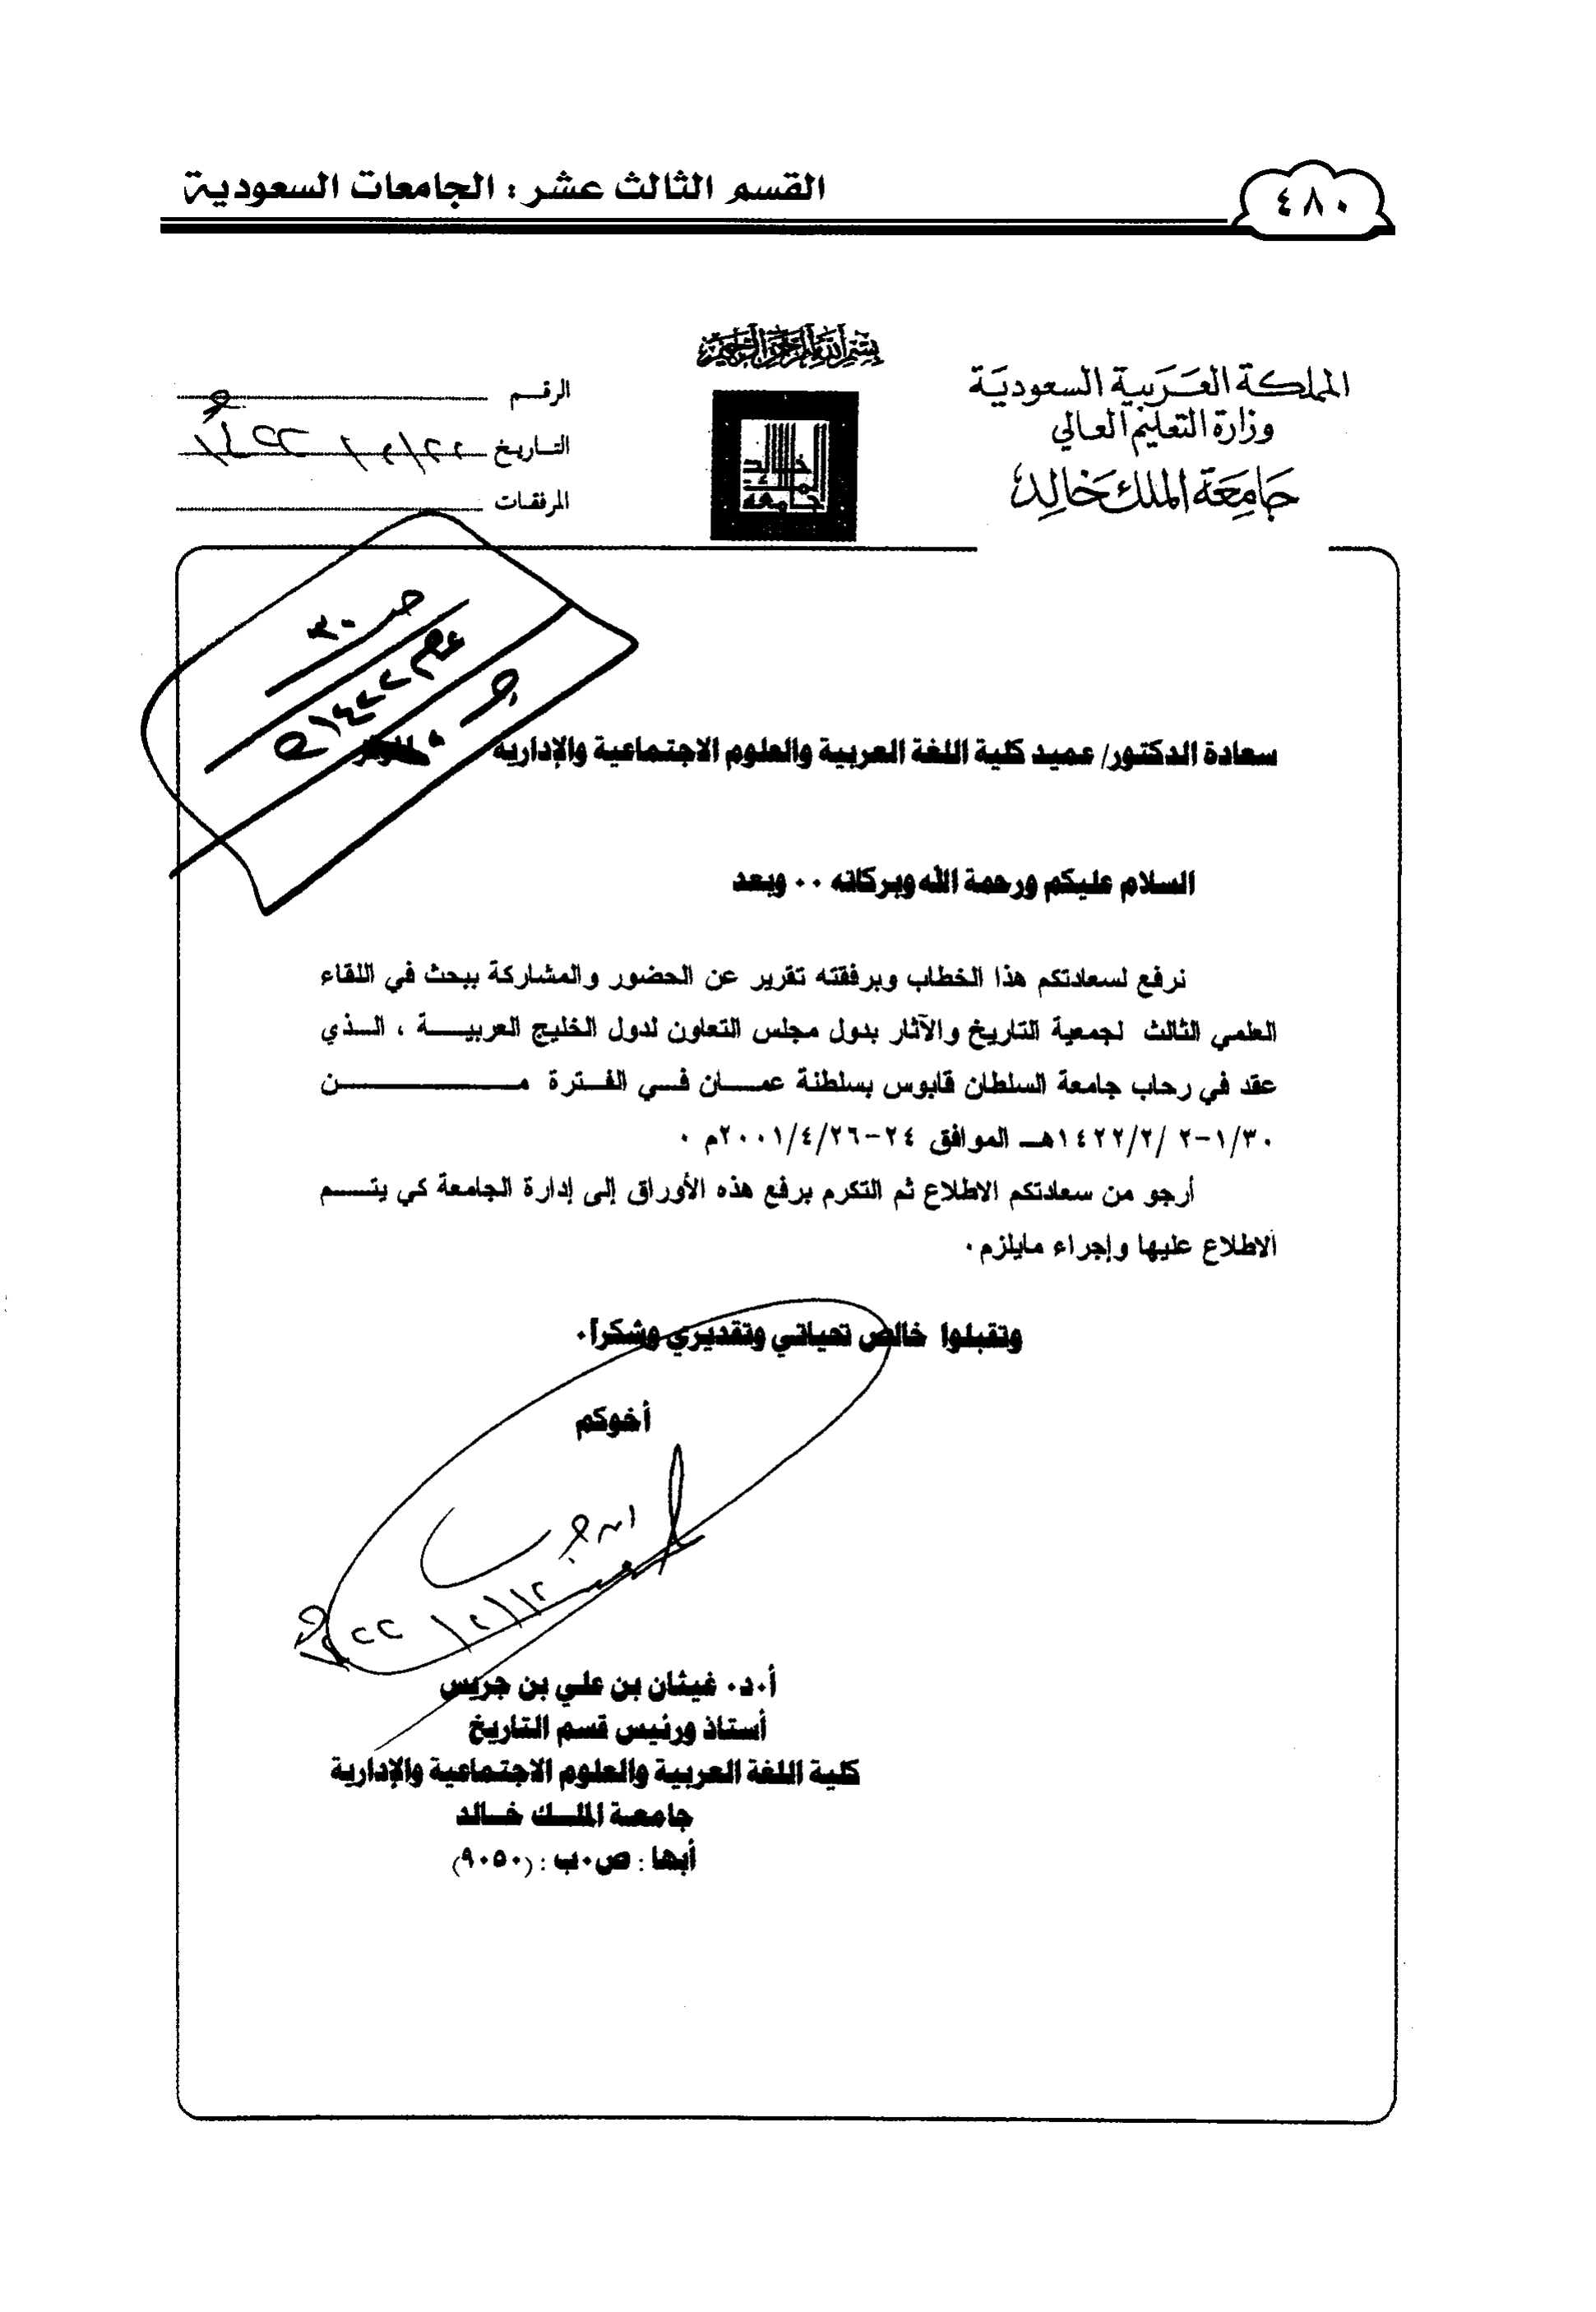 ٤٨٠
القسم الثالث عشر : الجامعات السعودية
بسم الله الرحمن الرحيم
المملكة العربية السعودية
وزارة التعليم العالي
جامعة الملك خالد
جامعة الملك خالد
الرقم
التاريخ
المرفقات
ص ٣٠
١٤٢٢هـ
سعادة الدكتور/ عميد كلية اللغة العربية والعلوم الاجتماعية والإدارية الموقر
السلام عليكم ورحمة الله وبركاته ٠٠ وبعد
نرفع لسعادتكم هذا الخطاب وبرفقته تقرير عن الحضور والمشاركة ببحث في اللقاء
العلمي الثالث لجمعية التاريخ والآثار بدول مجلس التعاون لدول الخليج العربيـــة ، الـــذي
عقد في رحاب جامعة السلطان قابوس بسلطنة عمـــان فـــي الفـــترة مـــــــن
١/٣٠-٢ /١٤٢٢/٢هـ الموافق ٢٤-٢٠٠١/٤/٢٦م ٠
أرجو من سعادتكم الاطلاع ثم التكرم برفع هذه الأوراق إلى إدارة الجامعة كي يتـــم
الاطلاع عليها وإجراء مايلزم٠
وتقبلوا خالص تحياتي وتقديري وشكراً٠
أخوكم
أ٠د٠ غيثان بن علي بن جريس
أستاذ ورئيس قسم التاريخ
كلية اللغة العربية والعلوم الاجتماعية والإدارية
جامعة الملك خالد
أبها : ص٠ب : (٩٠٥٠)